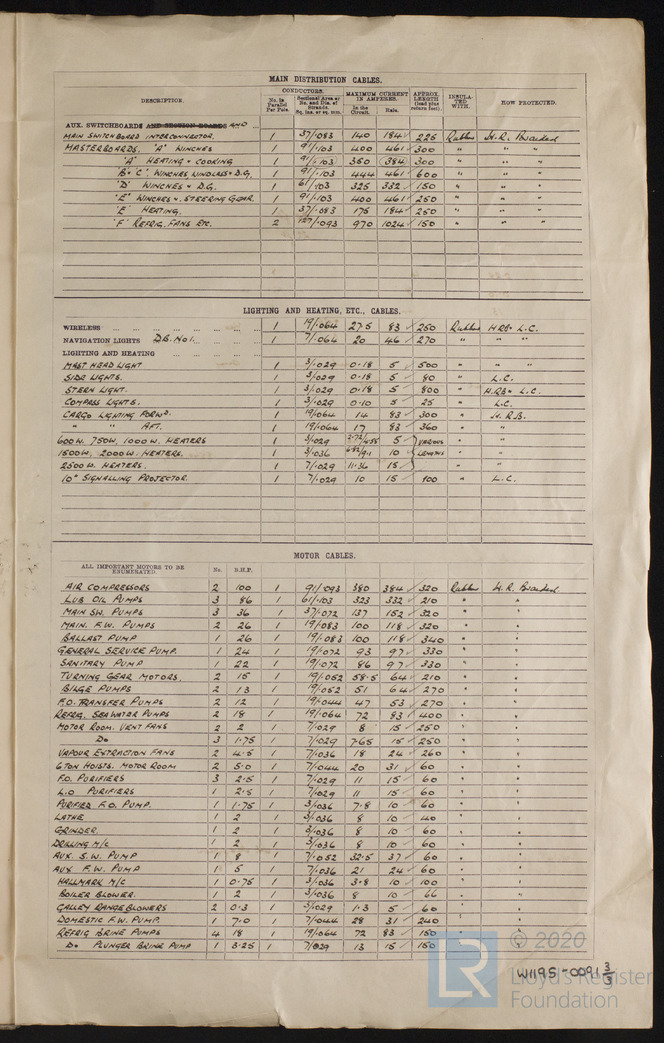 MAIN DISTRIBUTION CABLES.
DESCRIPTION. No. in Parallel Per Pole. CONDUCTORS. Sectional Area or No. and Dia. of Strands. Sq. ins. or sq. mm. MAXIMUM CURRENT IN AMPERES. In the Circuit. Rule. APPROX. LENGTH (lead plus return feet). INSULATED WITH. HOW PROTECTED.
AUX. SWITCHBOARDS AND SECTION BOARDS AND ...
MAIN SWITCHBOARD INTERCONNECTOR. 1 37/.083 140 184 225 Rubber H.R. Braided
MASTERBOARDS. 'A' WINCHES 1 91/.103 400 461 300 " " "
'A' HEATING & COOKING 1 91/.103 350 384 300 " " "
'B' & 'C'. WINCHES WINDLASS & D.G. 1 91/.103 444 461 600 " " "
'D' WINCHES & D.G. 1 61/.103 325 332 150 " " "
'E' WINCHES & STEERING GEAR. 1 91/.103 400 461 250 " " "
'E' HEATING. 1 37/.083 175 184 250 " " "
'F' REFRIG. FANS ETC. 2 127/.093 970 1024 150 " " "
LIGHTING AND HEATING, ETC., CABLES.
WIRELESS ... 1 19/.064 27.5 83 250 Rubber H.R.B & L.C.
NAVIGATION LIGHTS D.B. No 1. ... 1 7/.064 20 46 270 " " "
LIGHTING AND HEATING
MAST HEAD LIGHT 1 3/.029 0.18 5 500 " " "
SIDE LIGHTS. 1 3/.029 0.18 5 80 " L.C.
STERN LIGHT. 1 3/.029 0.18 5 800 " H.R.B & L.C.
COMPASS LIGHTS. 1 3/.029 0.10 5 25 " L.C.
CARGO LIGHTING FORWD. 1 19/.064 14 83 300 " H.R.B.
" " AFT. 1 19/.064 17 83 360 " "
600W. 750W, 1000W. HEATERS 1 3/.029 2.72/4.55 5 VARIOUS " "
1500W, 2000W. HEATERS. 1 3/.036 6.82/9.1 10 LENGTHS " "
2500 W. HEATERS. 1 7/.029 11.36 15 " "
10" SIGNALLING PROJECTOR 1 7/.029 10 15 100 " L.C.
MOTOR CABLES.
ALL IMPORTANT MOTORS TO BE ENUMERATED. No. B.H.P.
AIR COMPRESSORS 2 100 1 91/.093 380 384 320 Rubber H.R. Braided
LUB OIL PUMPS 3 86 1 61/.103 323 332 210 " "
MAIN SW. PUMPS 3 36 1 37/.072 137 152 320 " "
MAIN. F.W. PUMPS 2 26 1 19/.083 100 118 320 " "
BALLAST PUMP 1 26 1 19/.083 100 118 340 " "
GENERAL SERVICE PUMP. 1 24 1 19/.072 93 97 330 " "
SANITARY PUMP 1 22 1 19/.072 86 97 330 " "
TURNING GEAR MOTORS. 2 15 1 19/.052 58.5 64 210 " "
BILGE PUMPS 2 13 1 19/.052 51 64 270 " "
F.O. TRANSFER PUMPS 2 12 1 19/.044 47 53 270 " "
REFRIG. SEA WATER PUMPS 2 18 1 19/.064 72 83 400 " "
MOTOR ROOM. VENT FANS 2 2 1 7/.029 8 15 250 " "
Do 3 1.75 1 7/.029 7.65 15 250 " "
VAPOUR EXTRACTION FANS 2 4.5 1 7/.036 18 24 260 " "
6 TON HOISTS. MOTOR ROOM 2 5.0 1 7/.044 20 31 60 " "
F.O. PURIFIERS 3 2.5 1 7/.029 11 15 60 " "
L.O PURIFIERS 1 2.5 1 7/.029 11 15 60 " "
PURIFIER F.O. PUMP. 1 1.75 1 3/.036 7.8 10 60 " "
LATHE 1 2 1 3/.036 8 10 40 " "
GRINDER. 1 2 1 3/.036 8 10 60 " "
DRILLING M/C 1 2 1 3/.036 8 10 60 " "
AUX. S.W. PUMP 1 8 1 7/.052 32.5 37 60 " "
AUX F.W. PUMP 1 5 1 7/.036 21 24 60 " "
HALLMARK M/C 1 0.75 1 3/.036 3.8 10 100 " "
BOILER BLOWER. 1 2 1 3/.036 8 10 " "
GALLEY RANGE BLOWERS 2 0.3 1 3/.029 1.3 5 60 " "
DOMESTIC F.W. PUMP. 1 7.0 1 7/.044 28 31 240 " "
REFRIG BRINE PUMPS 4 18 1 19/.064 72 83 150 " "
Do PLUNGER BRINE PUMP 1 3.25 1 7/.029 13 15 150 " "
© 2020
W1195-0091 3/3
LR
Lloyd's Register
Foundation